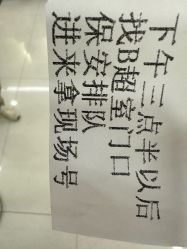 下午三点半以后
找B超室门口
保安排队
进来拿现场号